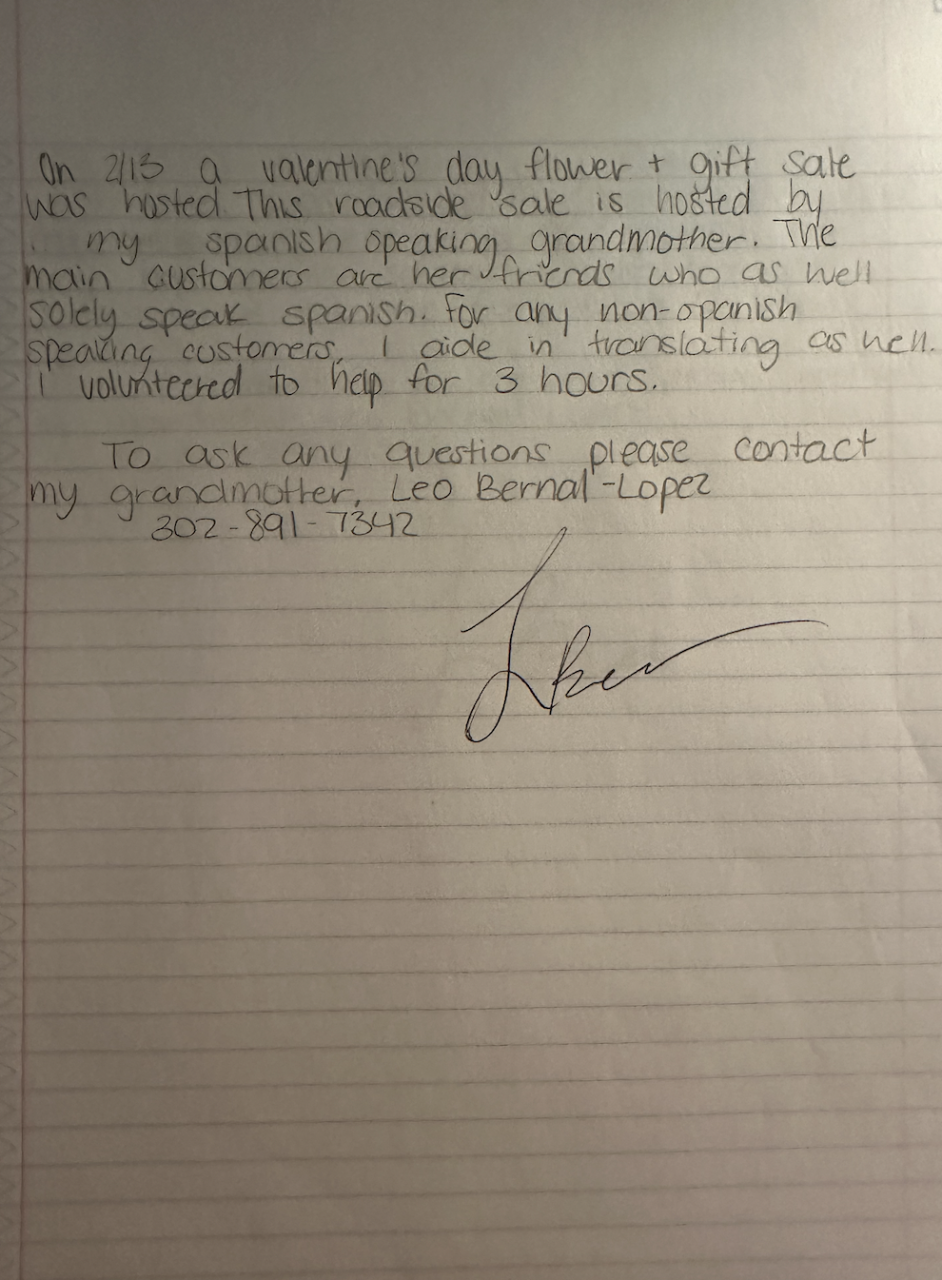 On 2/13 a valentine's day flower + gift sale
was hosted This roadside sale is hosted by
my spanish speaking grandmother. The
main customers are her friends who as well
solely speak spanish. For any non-spanish
speaking customers, I aide in translating as well.
I volunteered to help for 3 hours.
To ask any questions please contact
my grandmother, Leo Bernal-Lopez
302-891-7342